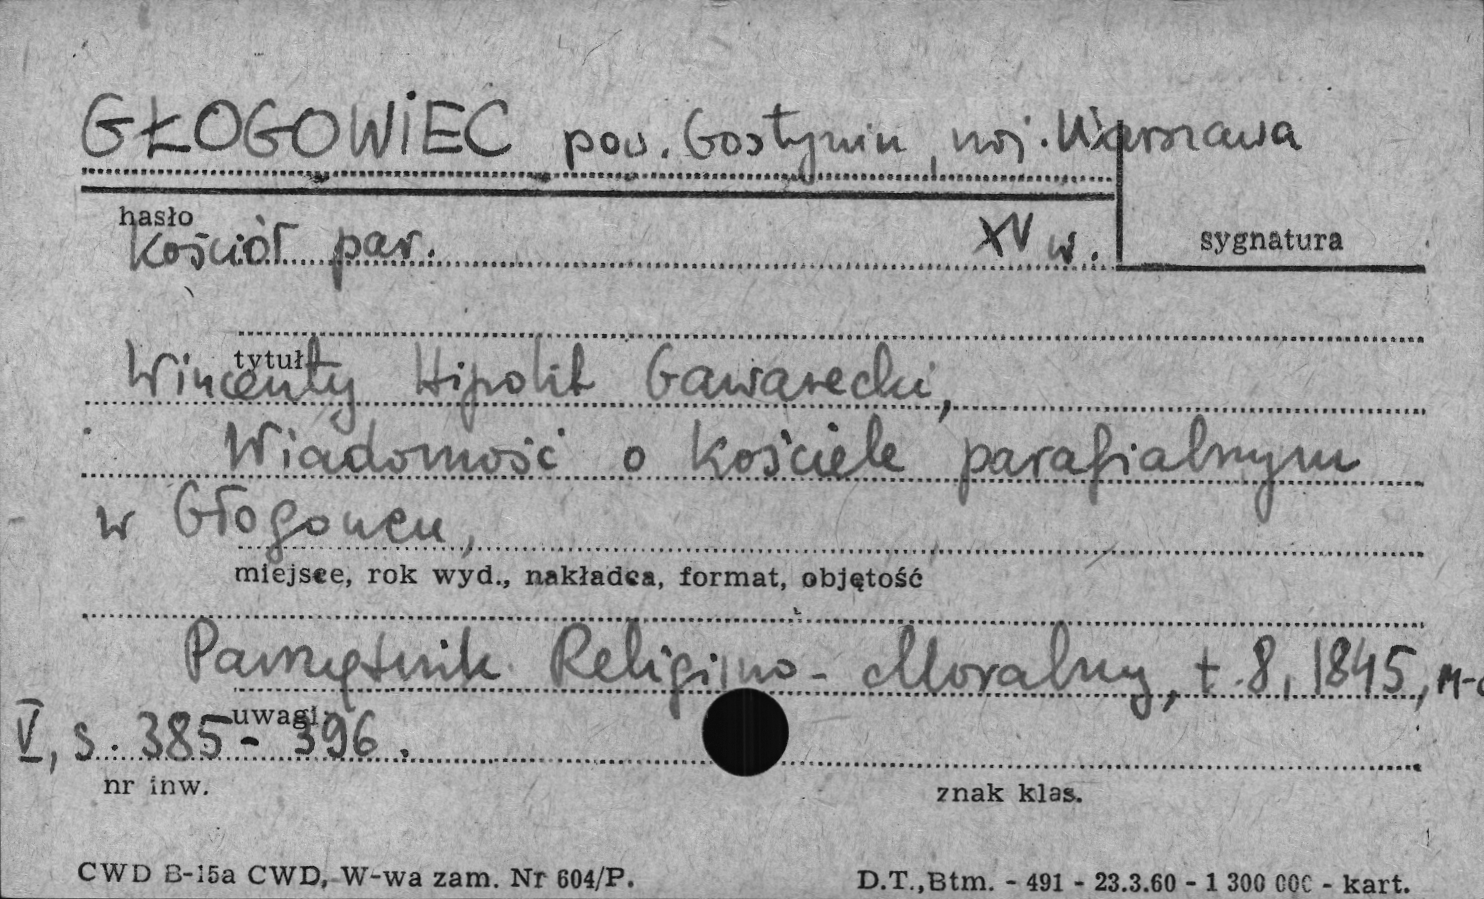 GŁOGOWIEC pow. Gostynin, woj. Warszawa
hasło
Kościół par. XV w.
sygnatura
tytuł
Wincenty Hipolit Gawarecki,
Wiadomość o kościele parafialnym
w Głogowcu,
miejsce, rok wyd., nakładca, format, objętość
Pamiętnik Religijno-Moralny, t. 8, 1845, m-c
uwagi
V, s. 385-396.
nr inw.
znak klas.
CWD B-15a CWD, W-wa zam. Nr 604/P.
D.T., Btm. - 491 - 23.3.60 - 1 300 000 - kart.